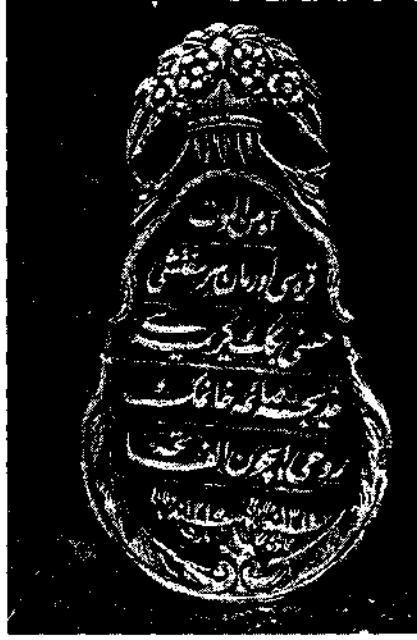 آه من الموت
قره سی اورمان سر مفتشی
حسنی بك كریمه سی
خدیجه صائمه خانمك
روحی ایچون الفاتحه